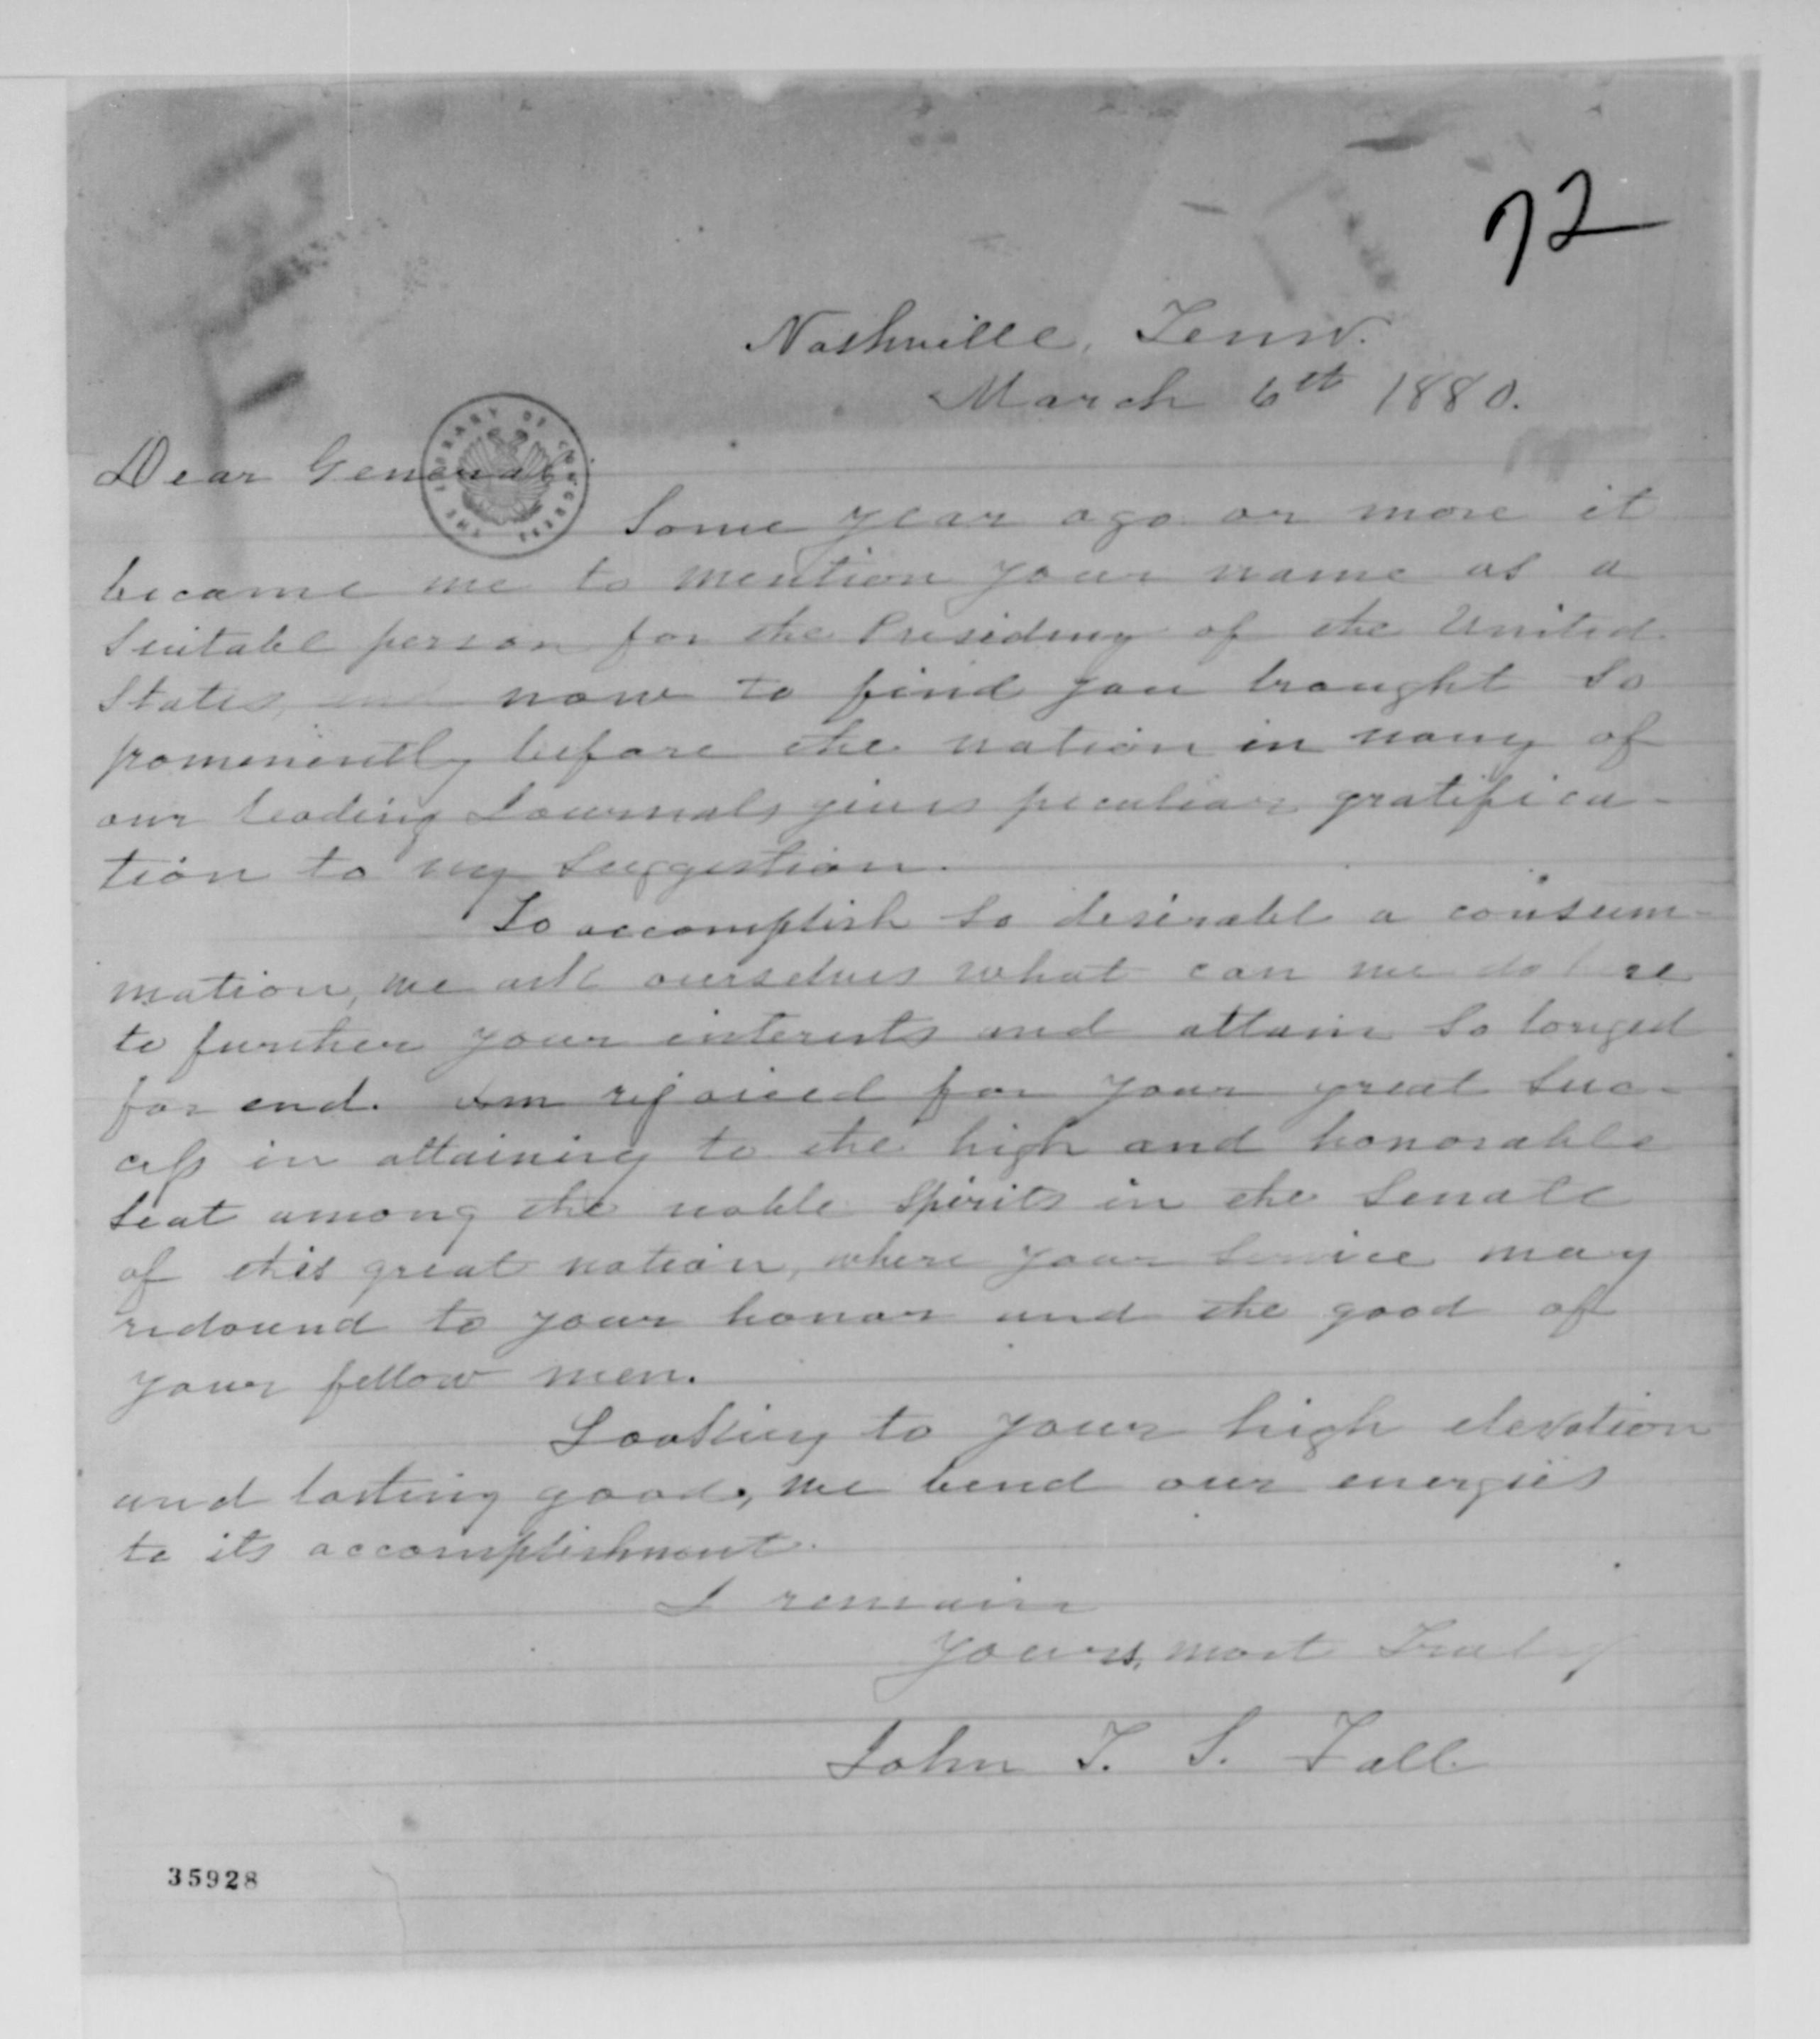 72
Nashville, Tenn.
March 6th 1880.
Dear General
THE LIBRARY OF CONGRESS
Some year ago or more it
became me to mention your name as a
suitable person for the Presidency of the United
States, and now to find you brought so
prominently before the nation in many of
our leading Journals gives peculiar gratifica-
tion to my suggestion.
To accomplish so desirable a consum-
mation, we ask ourselves what can we do here
to further your interests and attain so longed
for end. Am rejoiced for your great suc-
cess in attaining to the high and honorable
seat among the noble spirits in the Senate
of this great nation, where your service may
redound to your honor and the good of
your fellow men.
Looking to your high elevation
and lasting good, we bend our energies
to its accomplishment.
I remain
Yours, most Truly
John T. S. Fall
35928